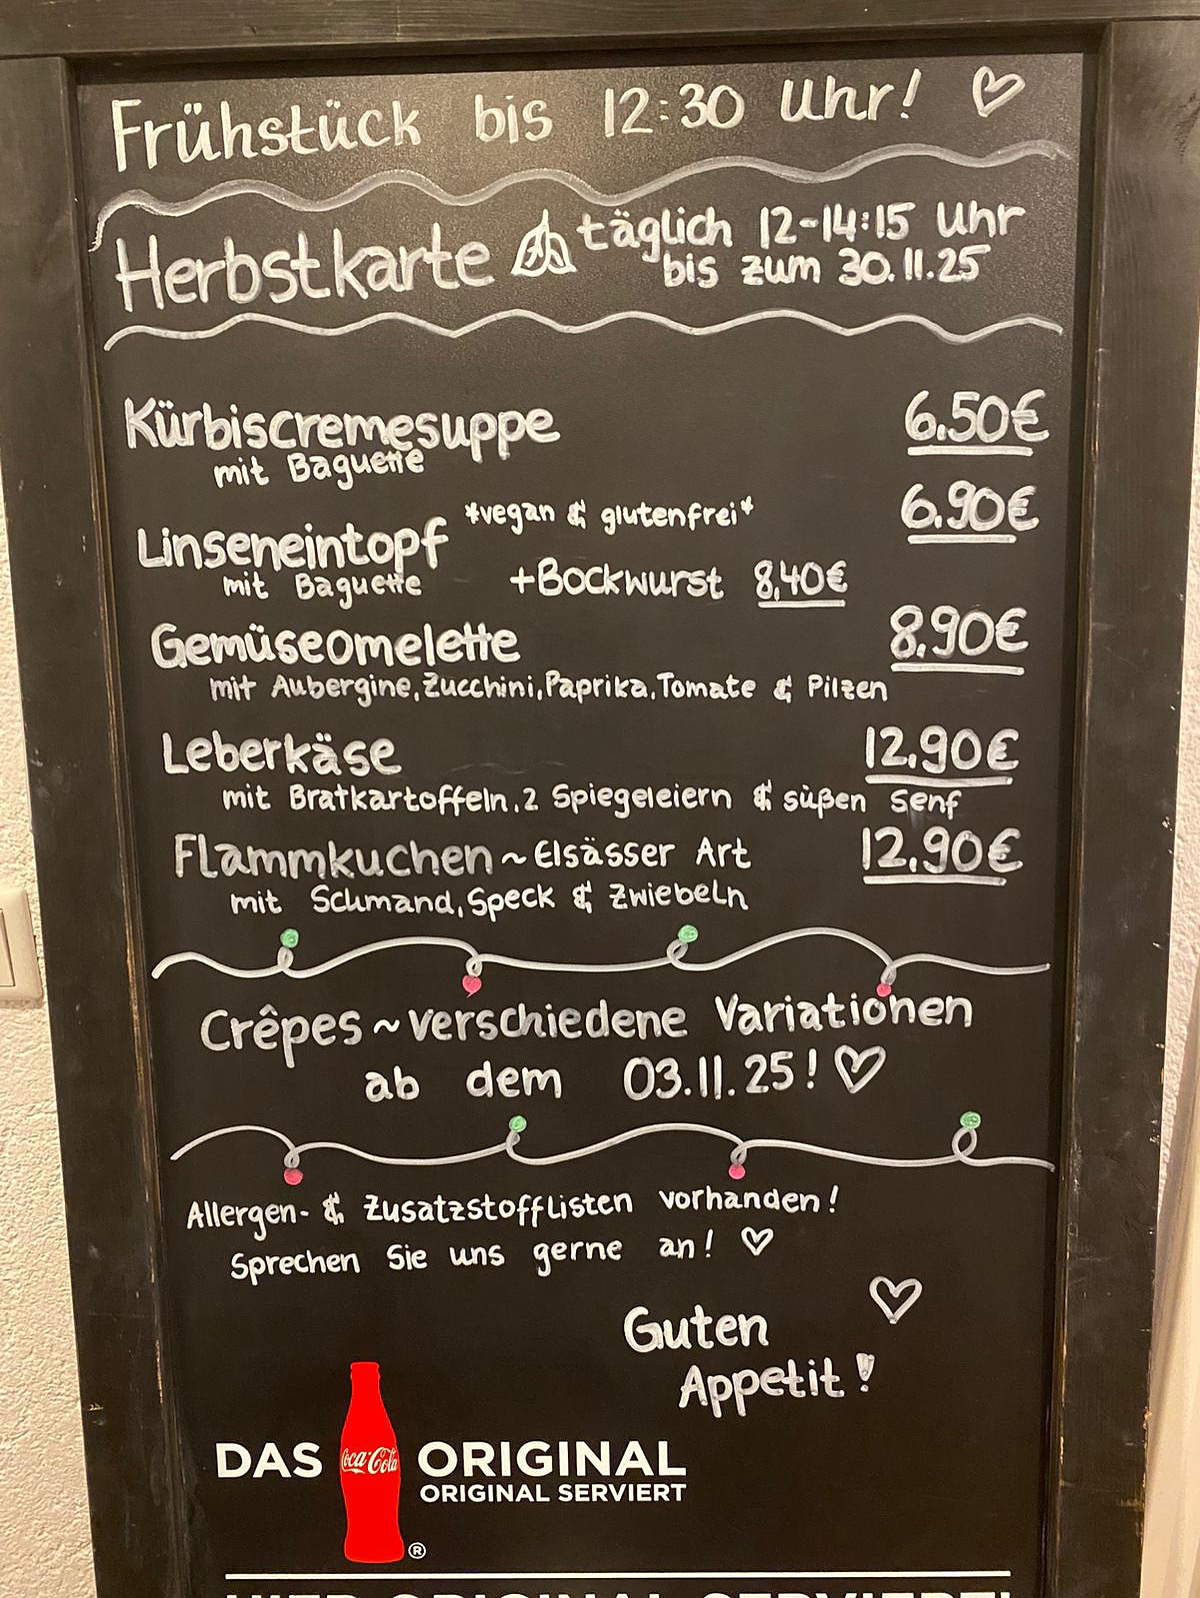 Frühstück bis 12:30 Uhr! ♡
Herbstkarte täglich 12-14:15 Uhr
bis zum 30.11.25
Kürbiscremesuppe 6.50€
mit Baguette
*vegan & glutenfrei* 6.90€
Linseneintopf
mit Baguette +Bockwurst 8,40€
Gemüseomelette 8.90€
mit Aubergine, Zucchini, Paprika, Tomate & Pilzen
Leberkäse 12.90€
mit Bratkartoffeln, 2 Spiegeleiern & süßen Senf
Flammkuchen ~ Elsässer Art 12.90€
mit Schmand, Speck & Zwiebeln
Crêpes ~ verschiedene Variationen
ab dem 03.11.25! ♡
Allergen- & Zusatzstofflisten vorhanden!
Sprechen Sie uns gerne an! ♡
Guten ♡
Appetit!
DAS Coca-Cola ORIGINAL
ORIGINAL SERVIERT
®
HIER ORIGINAL SERVIERT!